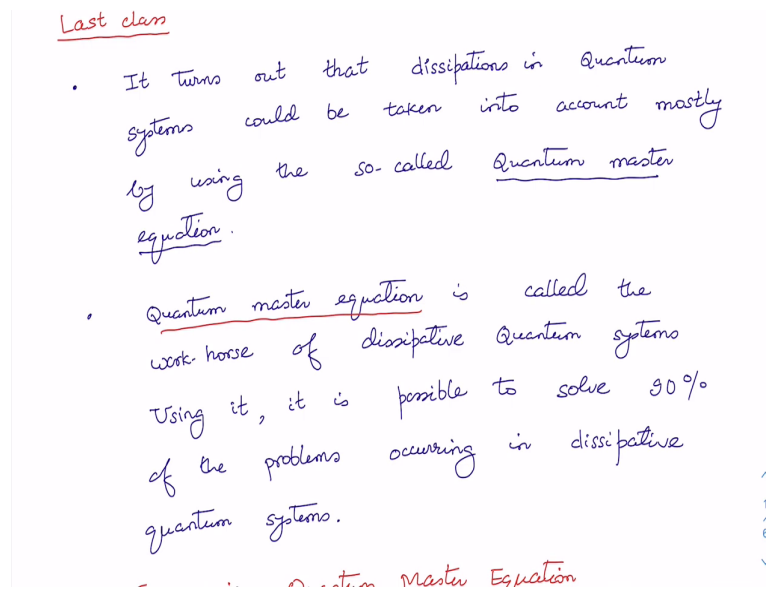 Last class
• It turns out that dissipations in Quantum
systems could be taken into account mostly
by using the so-called Quantum master
equation.
• Quantum master equation is called the
work-horse of dissipative Quantum systems
Using it, it is possible to solve 90%
of the problems occurring in dissipative
quantum systems.
Quantum Master Equation